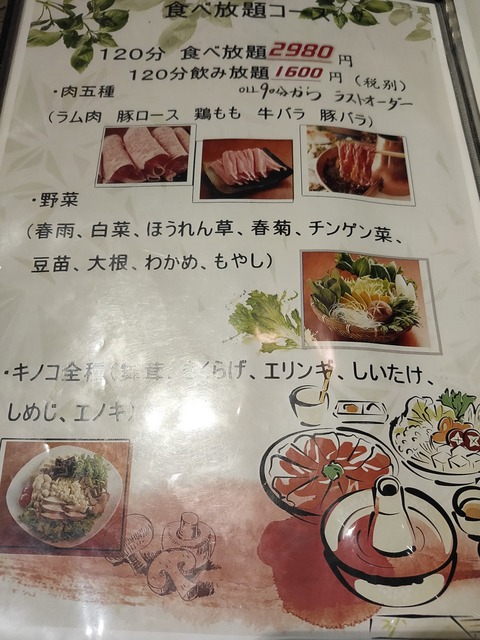 食べ放題コース
120分 食べ放題2980円
120分飲み放題1600円(税別)
・肉五種 90分から ラストオーダー
(ラム肉 豚ロース 鶏もも 牛バラ 豚バラ)
・野菜
(春雨、白菜、ほうれん草、春菊、チンゲン菜、
豆苗、大根、わかめ、もやし)
・キノコ全種 くらげ、エリンギ、しいたけ、
しめじ、エノキ)